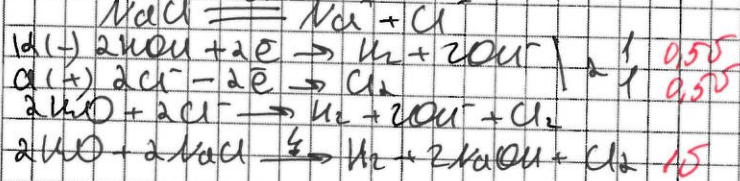 NaCl ⇌ Na⁺ + Cl⁻
K(-) 2HOH + 2ē → H₂ + 2OH⁻ | 2 1 0,5б
a(+) 2Cl⁻ - 2ē → Cl₂ 1 0,5б
2H₂O + 2Cl⁻ → H₂ + 2OH⁻ + Cl₂
2H₂O + 2NaCl → H₂ + 2NaOH + Cl₂ 1б